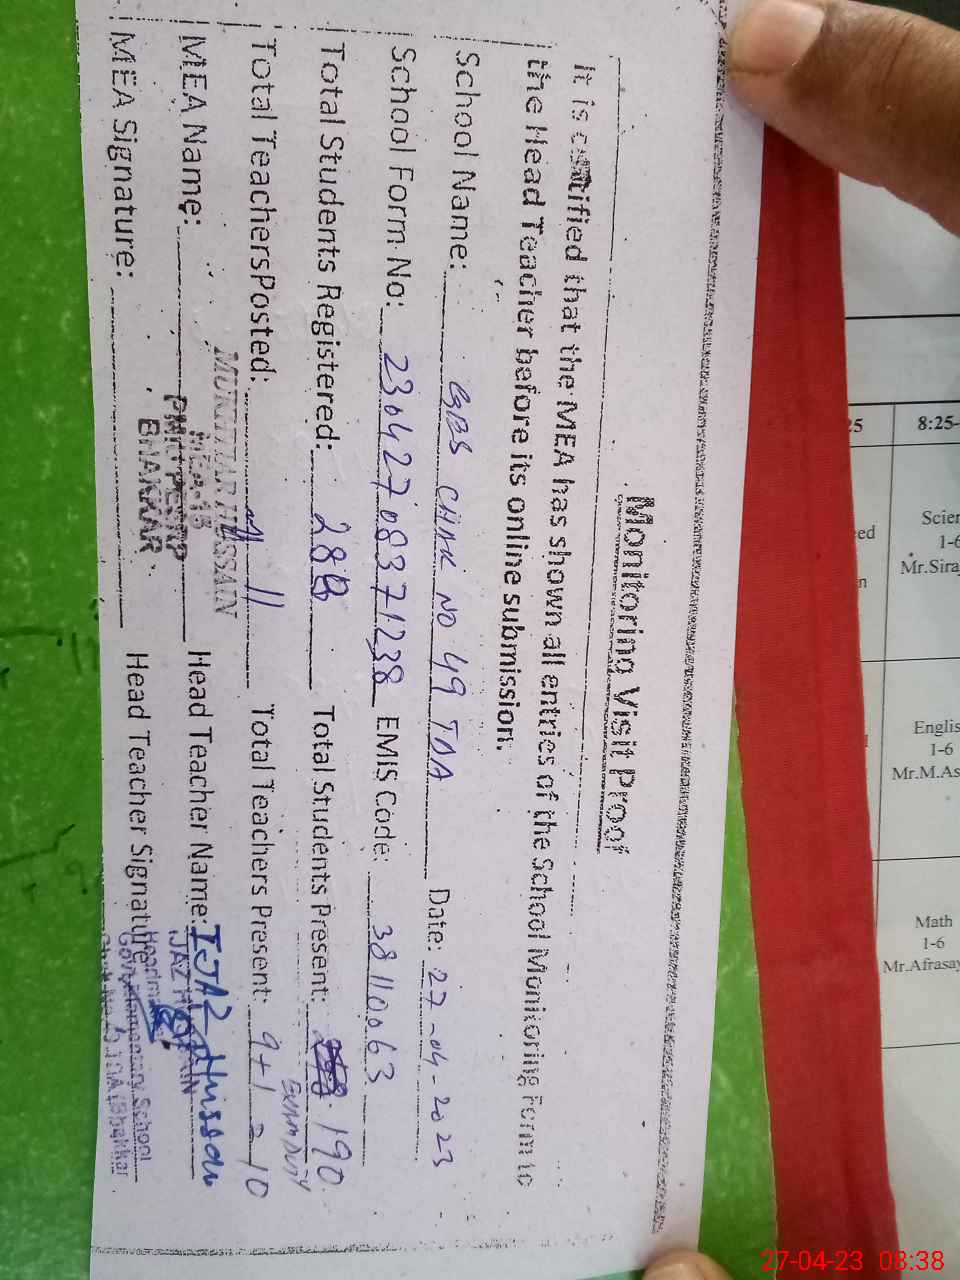 Monitoring Visit Proof
It is certified that the MEA has shown all entries of the School Monitoring Form to
the Head Teacher before its online submission.
School Name: GES CHAK NO 49 TDA Date: 27-04-2023
School Form No: 23042708371238 EMIS Code: 38110063
Total Students Registered: 288 Total Students Present: 190
EXAM DUTY
Total Teachers Posted: 11 Total Teachers Present: 9+1=10
MUKHTAR HUSSAIN
MEA Name: MEA-13 Head Teacher Name: IJAZ Hussain
PMIU-PESRP
IJAZ HUSSAIN
MEA Signature: BHAKKAR Head Teacher Signature:
Headmaster
Govt. Elementary School
Chak No. 49 TDA (Bhakkar
25
8:25-
ed
Scien
1-6
n
Mr.Siraj
Englis
1-6
Mr.M.As
Math
1-6
Mr.Afrasay
27-04-23 08:38